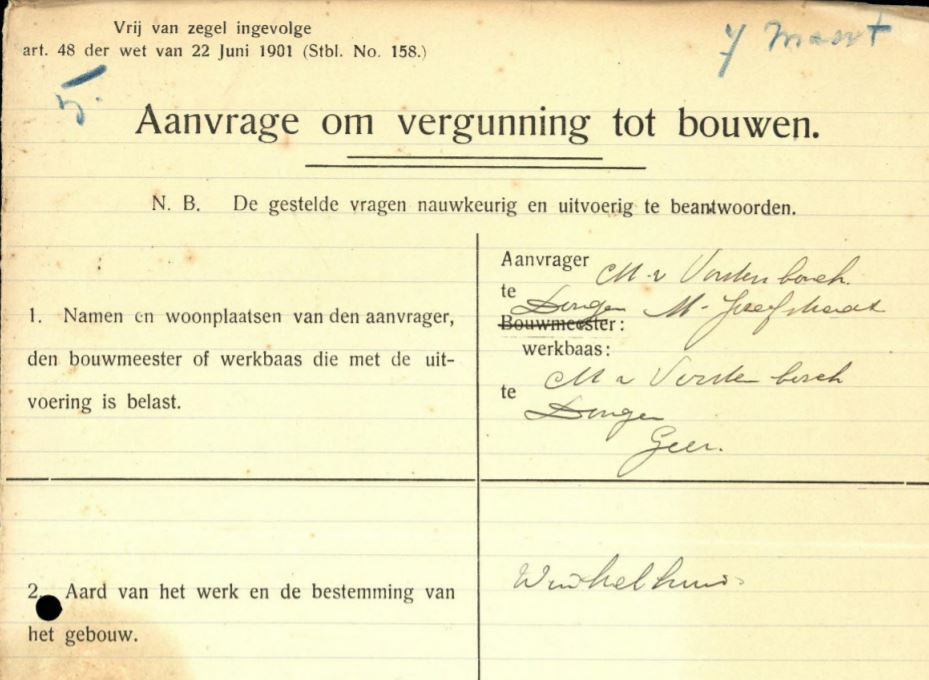 Vrij van zegel ingevolge
art. 48 der wet van 22 Juni 1901 (Stbl. No. 158.)
7 Maart
5.
Aanvrage om vergunning tot bouwen.
N. B. De gestelde vragen nauwkeurig en uitvoerig te beantwoorden.
1. Namen en woonplaatsen van den aanvrager,
den bouwmeester of werkbaas die met de uit-
voering is belast.
Aanvrager M v Vorstenbosch.
te Dongen St. Josefstraat
Bouwmeester:
werkbaas:
M v Vorstenbosch
te Dongen
Geer.
2. Aard van het werk en de bestemming van
het gebouw.
Winkelhuis